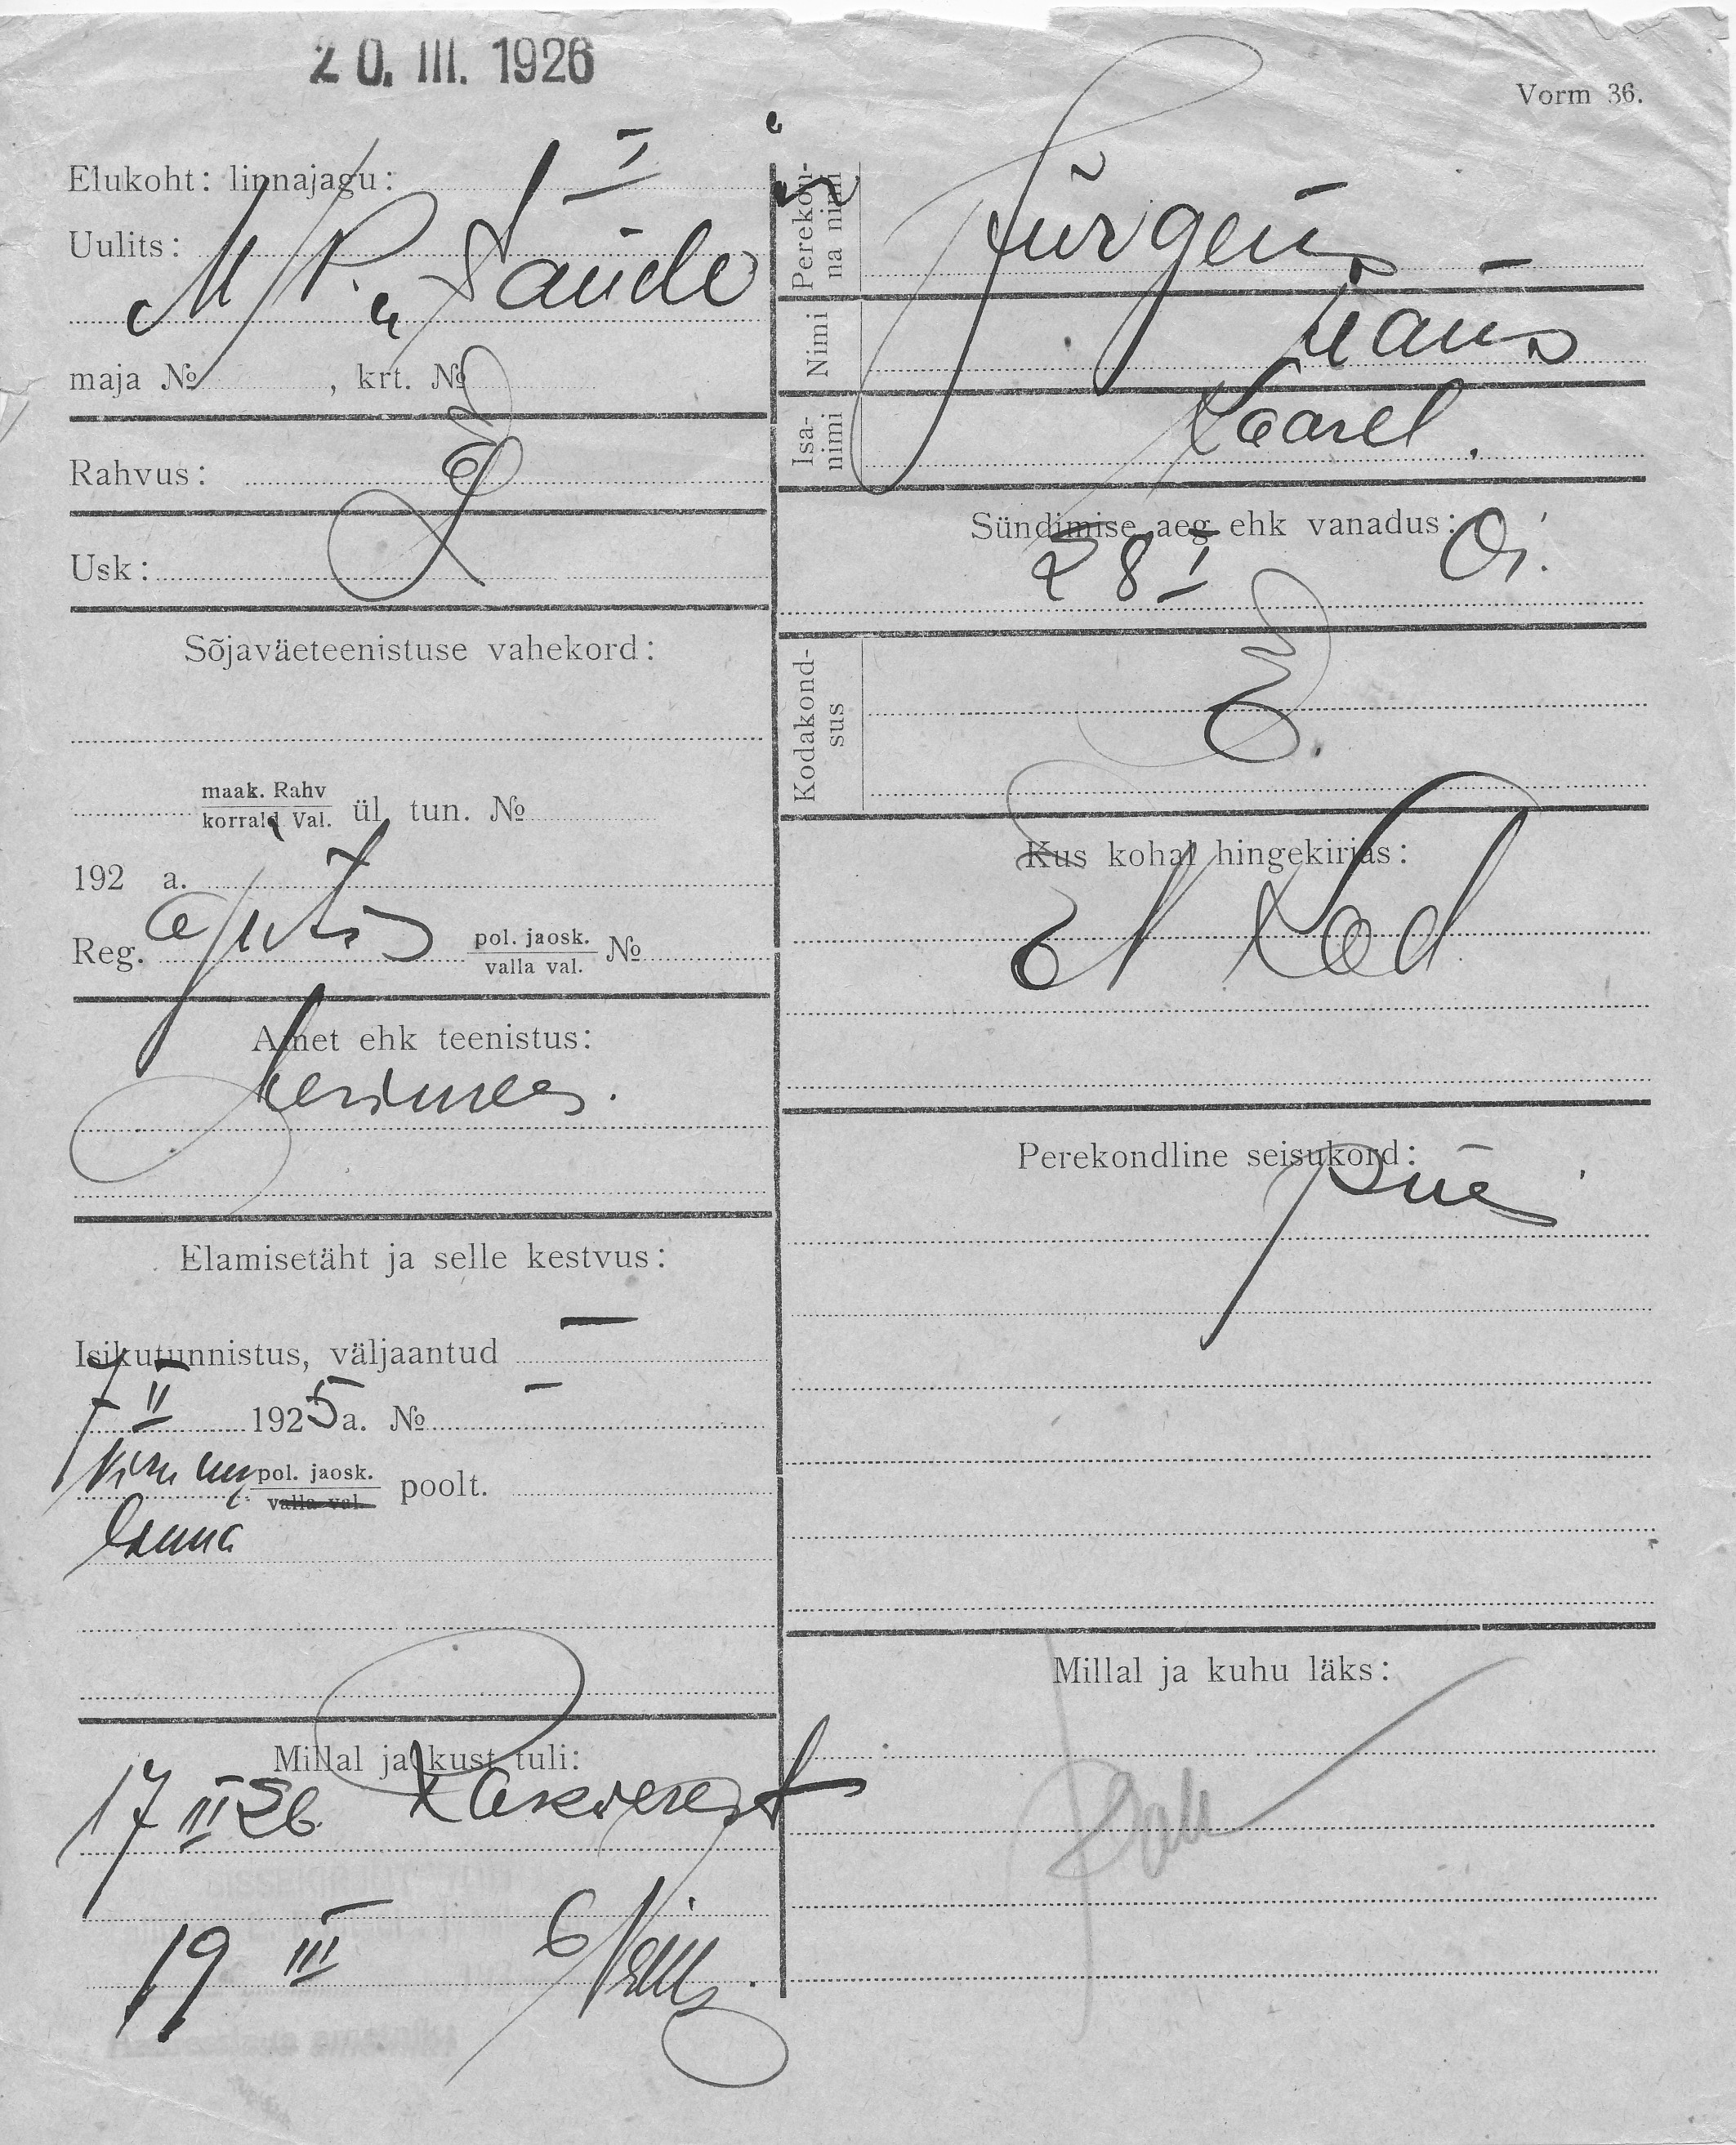 20. III. 1926
Vorm 36.
Elukoht: linnajagu: I
Uulits:
M/P. „
maja № , krt. №
Rahvus:
Usk:
Sõjaväeteenistuse vahekord:
maak. Rahv
korrald Val. ül. tun. №
192 a.
Reg. pol. jaosk.
valla val. №
Amet ehk teenistus:
Merimees.
Elamisetäht ja selle kestvus:
Isikutunnistus, väljaantud —
7 II 1925 a. № —
pol. jaosk.
valla val. poolt.
Millal ja kust tuli:
17 III 26. Rakverest
19 III
Perekon-
na nimi
Jürgens
Nimi
Hans
Isa-
nimi
Kaarel.
Sündimise aeg ehk vanadus:
28 I 01.
Kodakond-
sus
E.
Kus kohal hingekirjas:
Perekondline seisukord:
Millal ja kuhu läks: